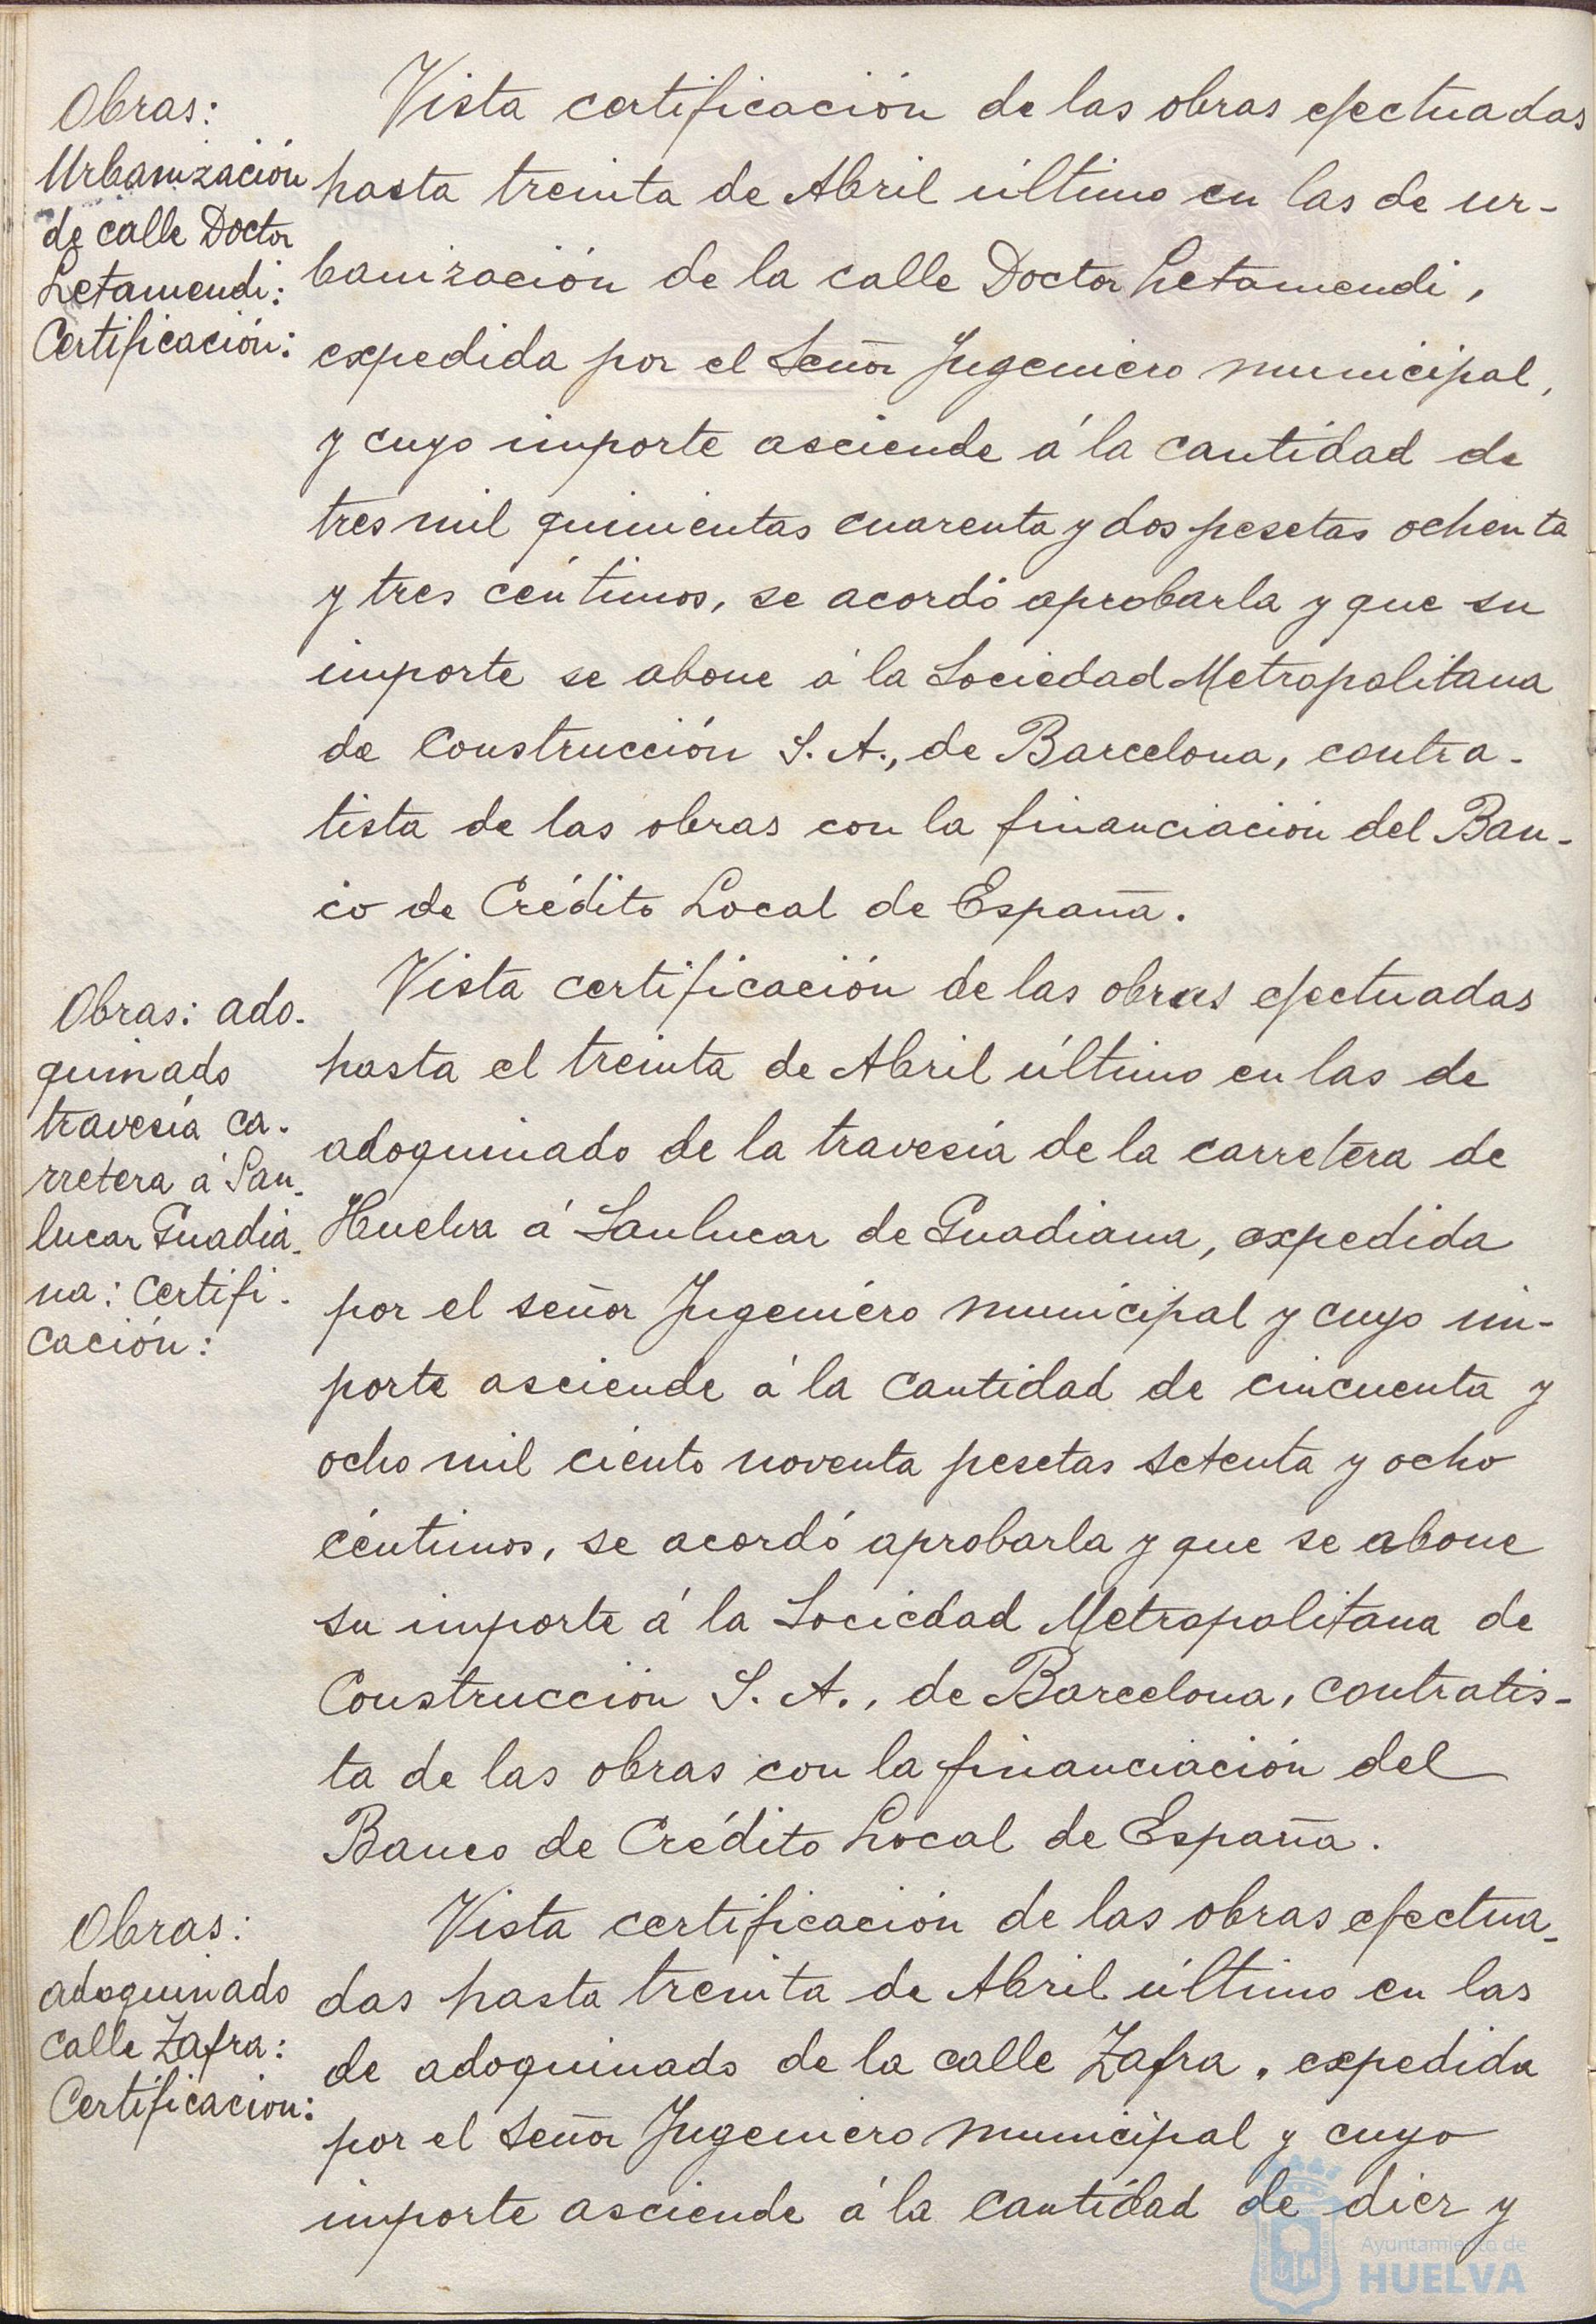 Obras:
Urbanización
de calle Doctor
Letamendi:
Certificación:
Vista certificación de las obras efectuadas
hasta treinta de Abril último en las de ur-
banización de la calle Doctor Letamendi,
expedida por el Señor Ingeniero municipal,
y cuyo importe asciende á la cantidad de
tres mil quinientas cuarenta y dos pesetas ochenta
y tres céntimos, se acordó aprobarla y que su
importe se abone á la Sociedad Metropolitana
de Construcción S. A., de Barcelona, contra-
tista de las obras con la financiación del Ban-
co de Crédito Local de España.
Obras: ado-
quinado
travesía ca-
rretera á San-
lucar Guadia-
na: Certifi-
cación:
Vista certificación de las obras efectuadas
hasta el treinta de Abril último en las de
adoquinado de la travesía de la carretera de
Huelva á Sanlucar de Guadiana, expedida
por el señor Ingeniero municipal y cuyo im-
porte asciende á la cantidad de cincuenta y
ocho mil ciento noventa pesetas setenta y ocho
céntimos, se acordó aprobarla y que se abone
su importe á la Sociedad Metropolitana de
Construcción S. A., de Barcelona, contratis-
ta de las obras con la financiación del
Banco de Crédito Local de España.
Obras:
adoquinado
calle Zafra:
Certificacion:
Vista certificación de las obras efectua-
das hasta treinta de Abril último en las
de adoquinado de la calle Zafra, expedida
por el Señor Ingeniero municipal y cuyo
importe asciende á la cantidad de diez y
Ayuntamiento de
HUELVA